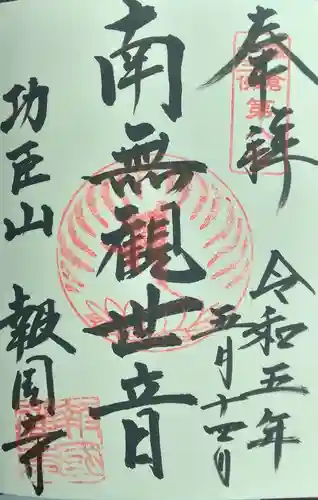 奉拝
令和五年
五月十四日
南無観世音
功臣山
報国寺